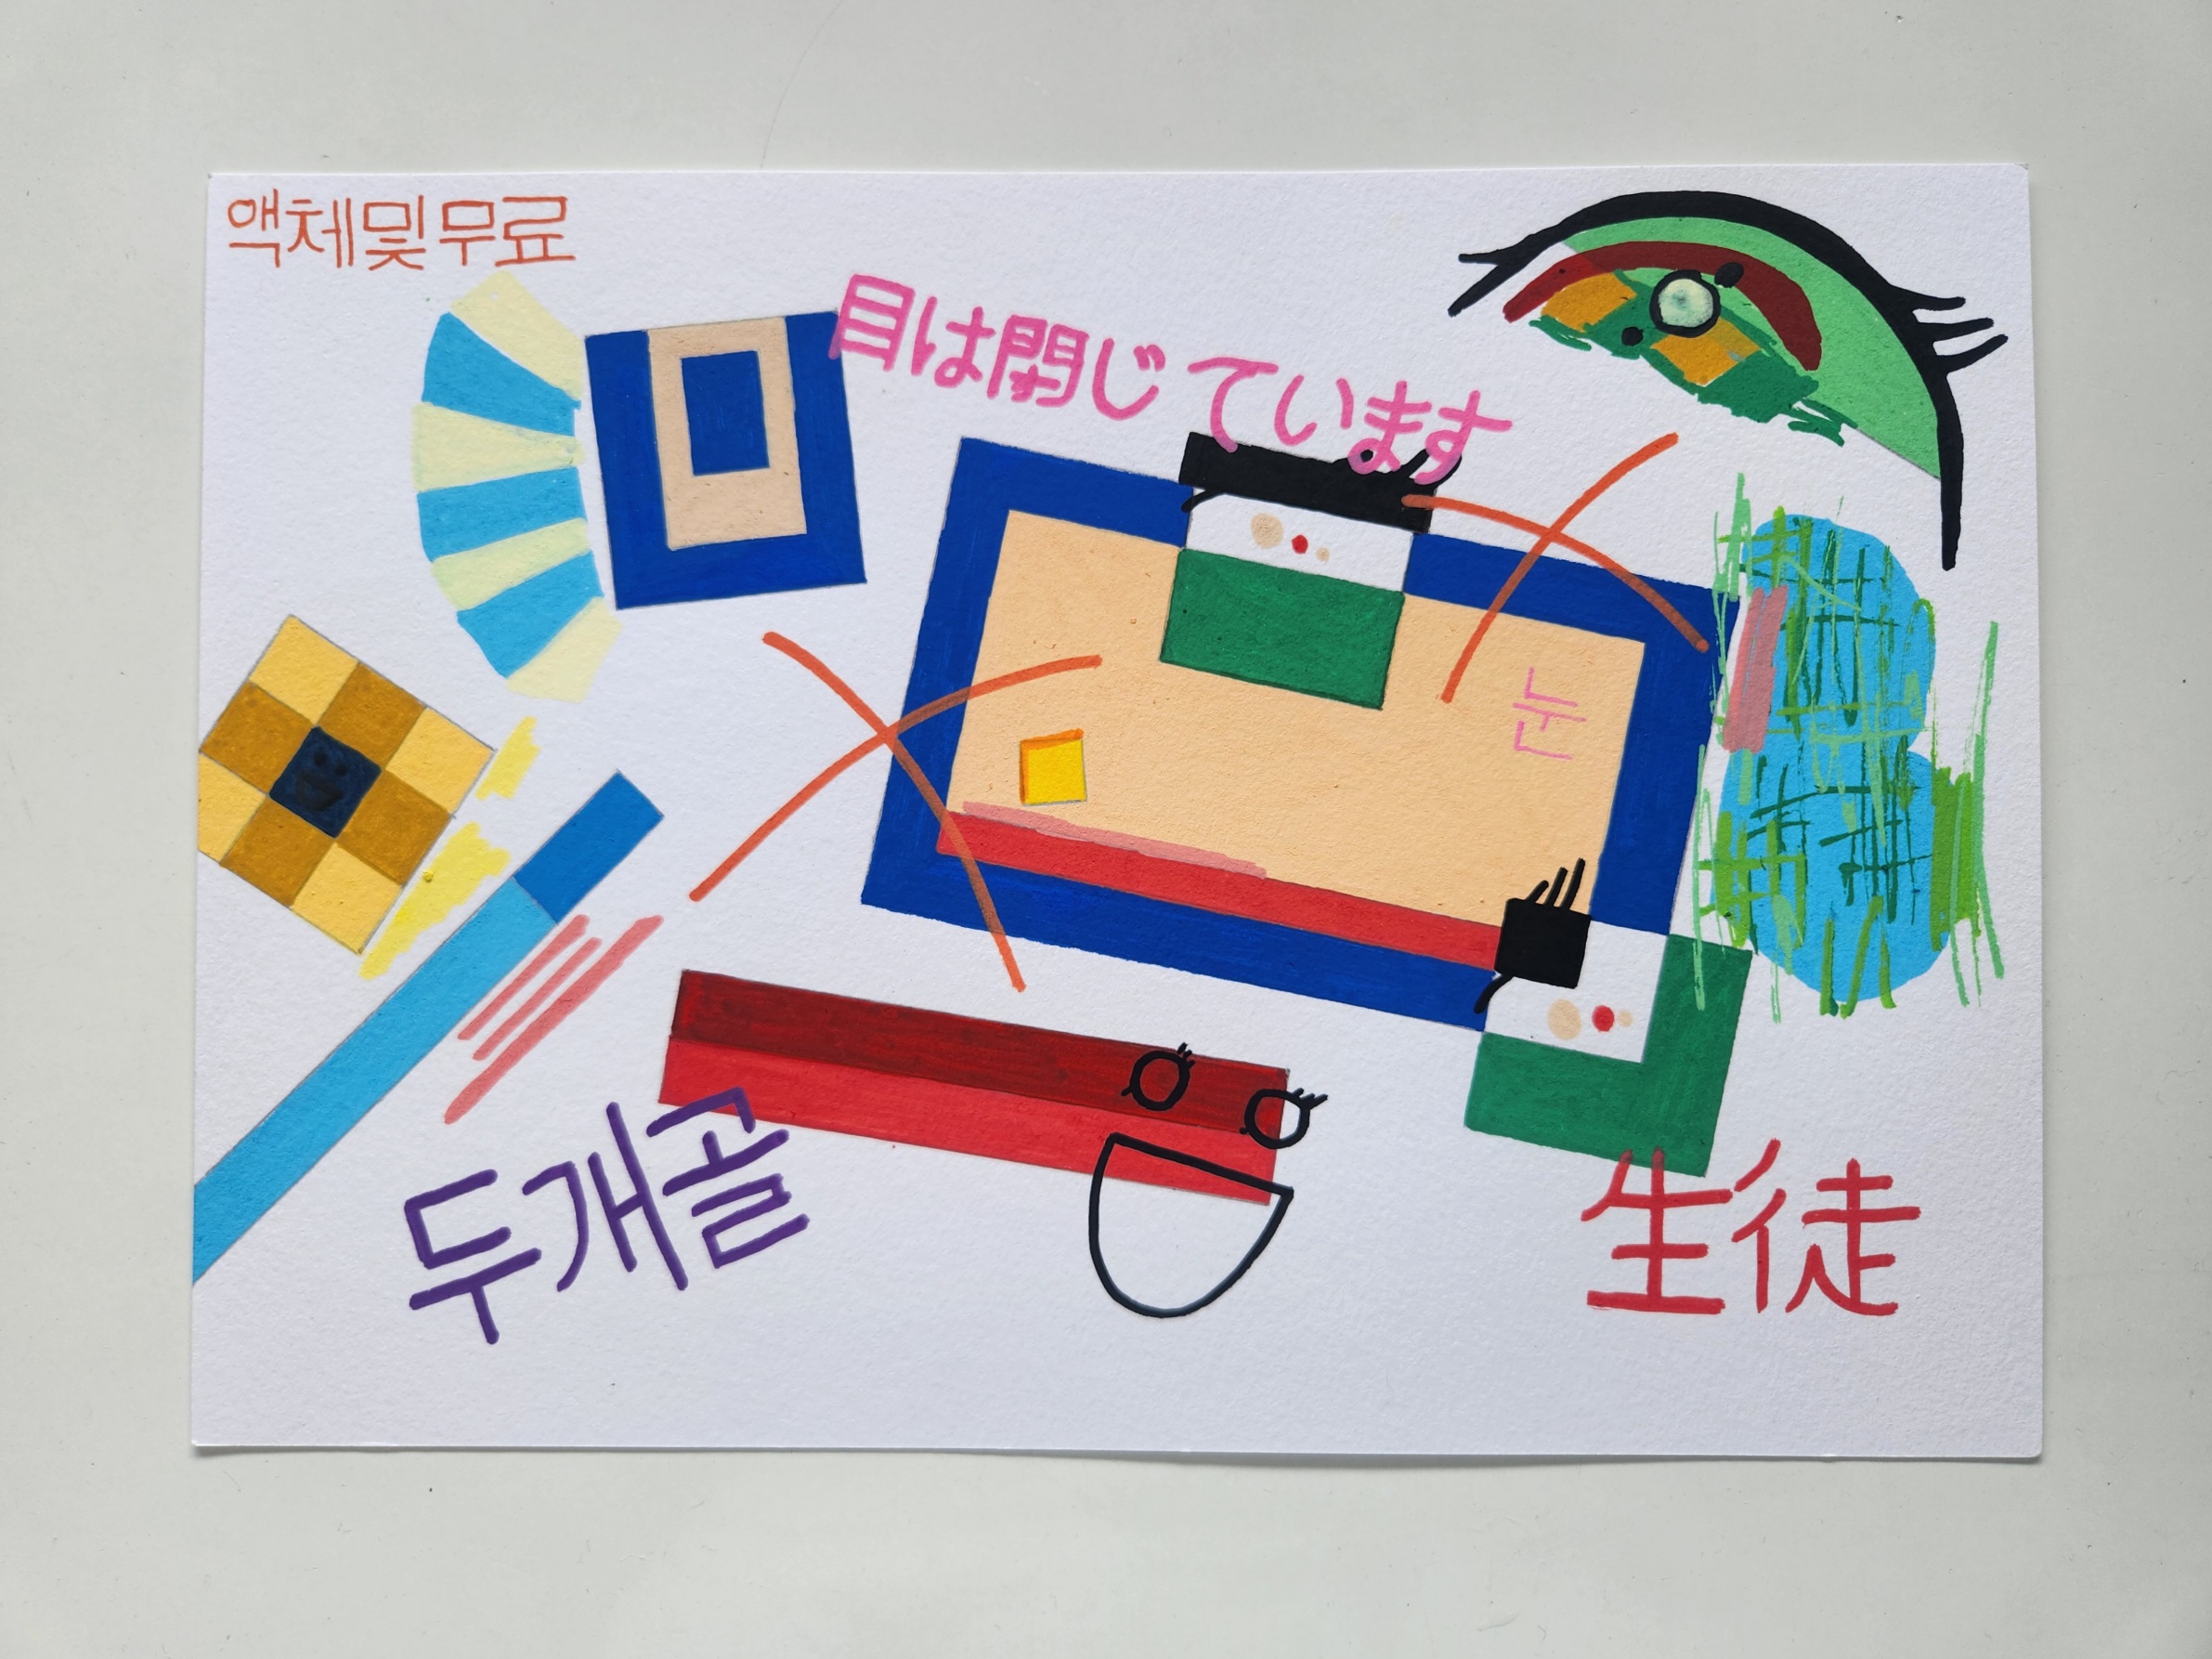 액체및무료
目は閉じています
눈
두개골
生徒